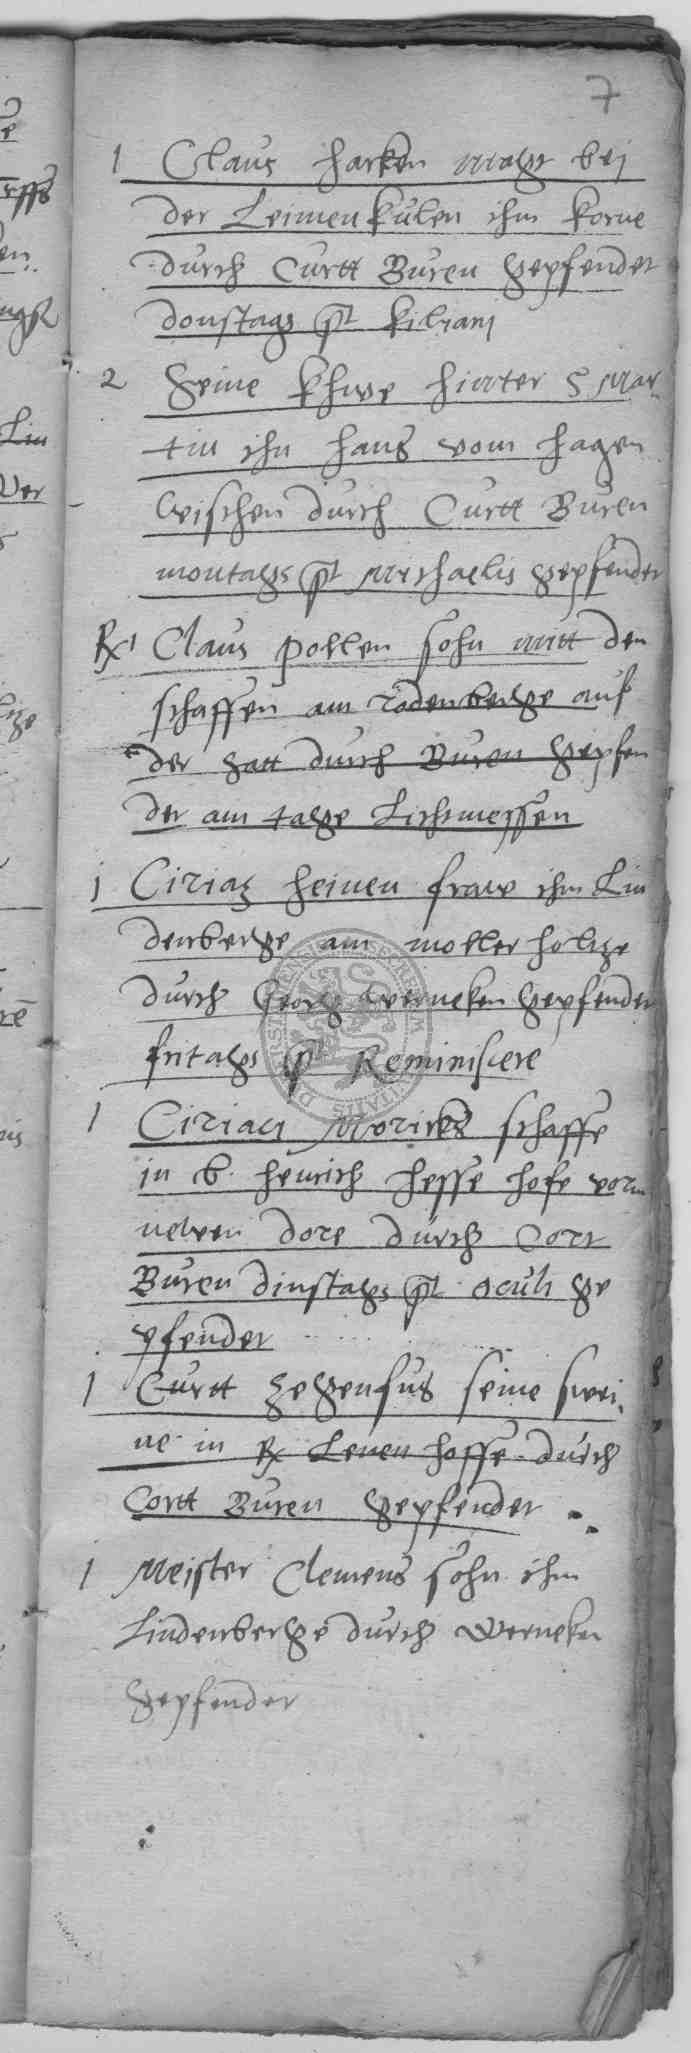 7
1 Claus harken magt bej
der Leimenkulen ihm korne
durch Curtt Buren gepfendet
donstags pt kiliani
2 seine khue hinter S Mar
tin ihn hans vom hagen
wischen durch Curtt Buren
montags pt Michaelis gepfendet
1 Claus pollen sohn mitt den
schaffen am rodenberge auf
der satt durch Buren gepfen
det am tage Lichtmessen
1 Ciriaq heinen frawe ihm Lin
denberge am moller holtze
durch Georg werneken gepfendet
fritags pt Reminiscere
1 Ciriaci Moricks schaffe
in b. henrich hesse hofe vorm
newen dore durch Cort
Buren dinstags pt oculi ge
pfendet
1 Curtt segenfus seine swei
ne in Lenen hoffe durch
Cortt Buren gepfendet
1 Meister Clemens sohn ihm
Lindenberge durch werneken
gepfendet